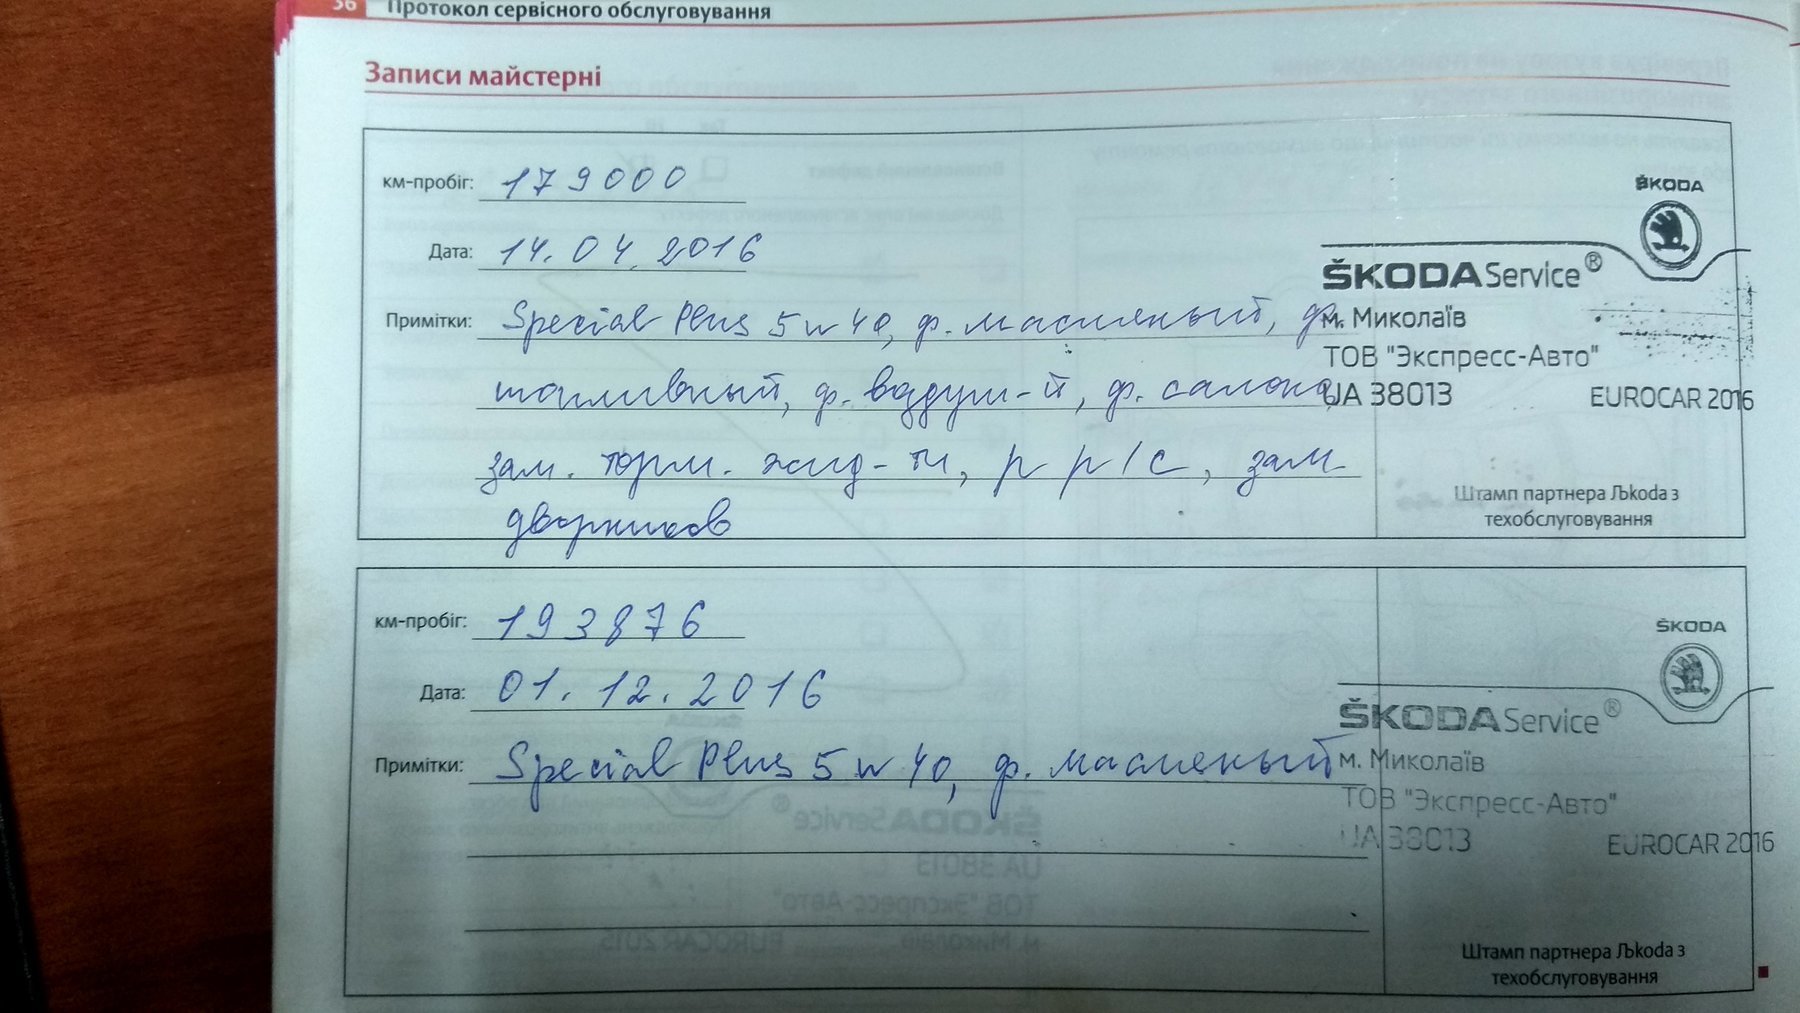 36 Протокол сервісного обслуговування
Записи майстерні
км-пробіг: 179000
Дата: 14.04.2016
Примітки: Special Plus 5w40, ф. масляный, ф.
топливный, ф. воздуш-й, ф. салона,
зам. торм. жид-ти, р р/с, зам
дворников
ŠKODA
ŠKODA Service®
м. Миколаїв
ТОВ "Экспресс-Авто"
UA 38013 EUROCAR 2016
Штамп партнера Љkoda з
техобслуговування
км-пробіг: 193876
Дата: 01.12.2016
Примітки: Special Plus 5w40, ф. масляный
ŠKODA
ŠKODA Service®
м. Миколаїв
ТОВ "Экспресс-Авто"
UA 38013 EUROCAR 2016
Штамп партнера Љkoda з
техобслуговування